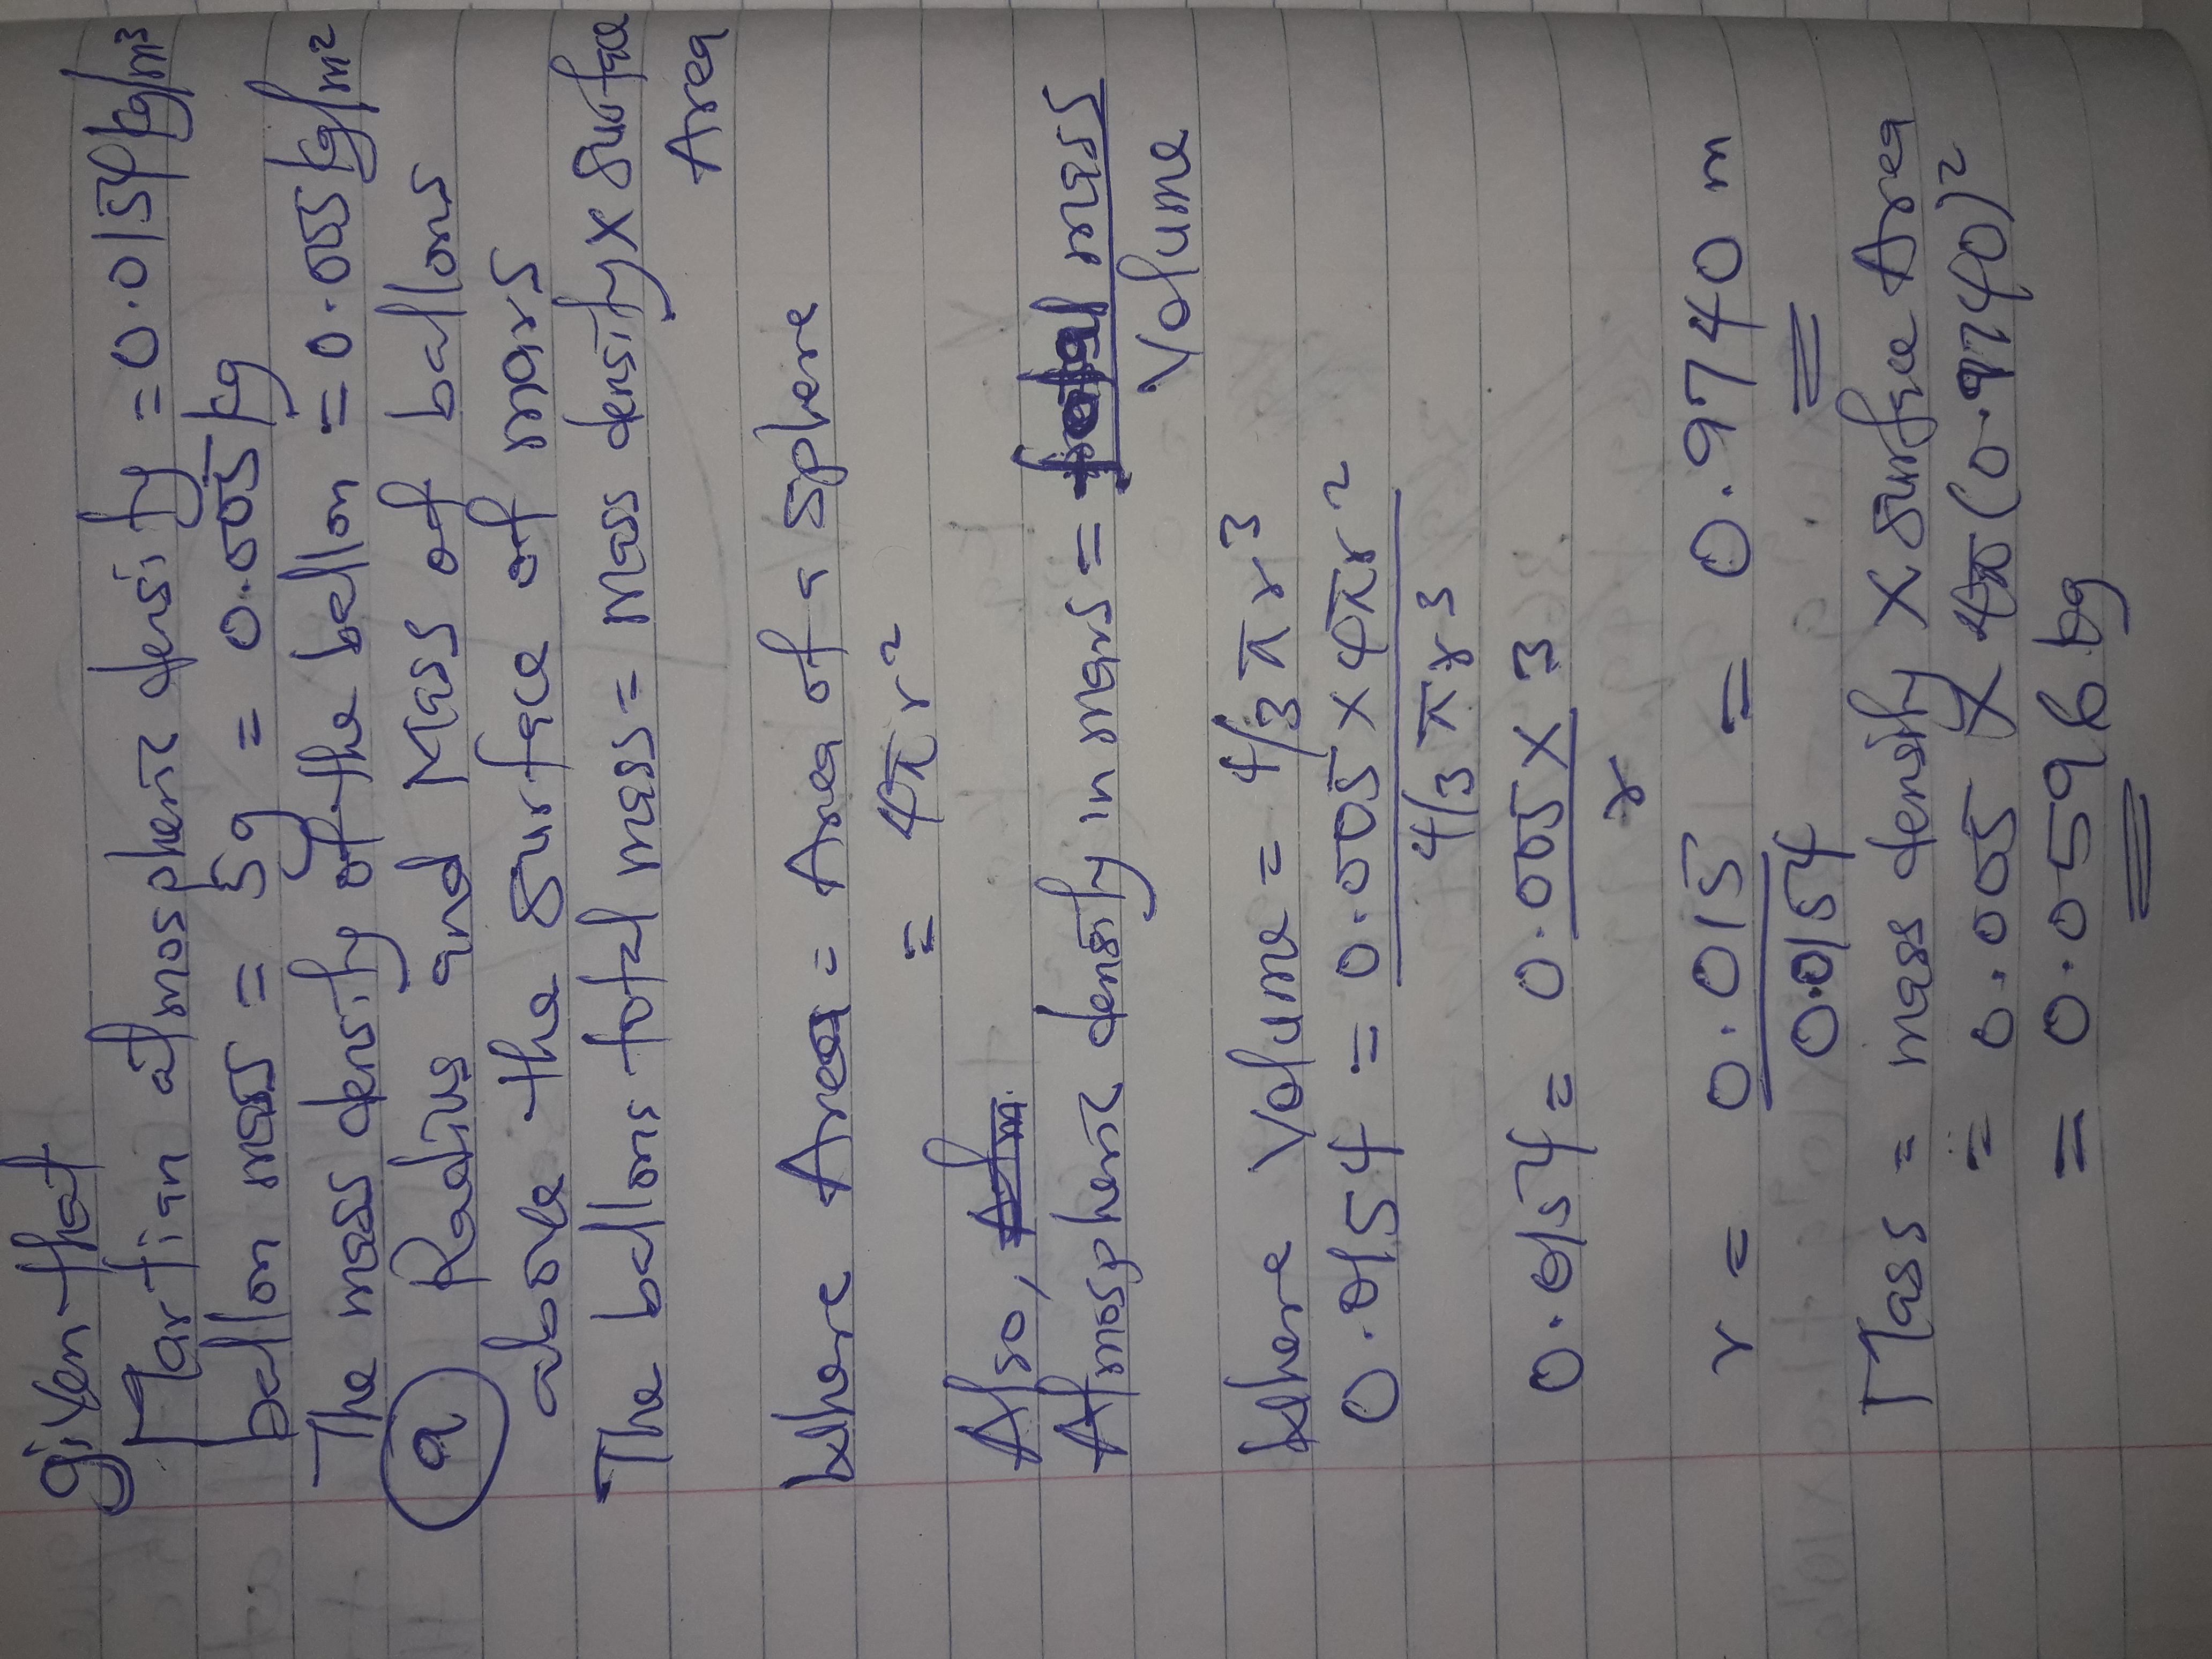 given that
Martian atmospheric density = 0.0154 kg/m³
ballon mass = 5g = 0.005 kg
The mass density of the ballon = 0.005 kg/m²
(a) Radius and Mass of ballons
above the surface of mars
The ballons total mass = Mass density x Surface
Area
Where Area = Area of a sphere
= 4π r²
Also,
Atmospheric density in mars = mass
Volume
Where Volume = 4/3 π r³
0.0154 = 0.005 x 4πr²
4/3 π r³
0.0154 = 0.005 x 3
r
r = 0.015 = 0.9740 m
0.0154
Mass = mass density x surface Area
= 0.005 x 4π (0.9740)²
= 0.0596 kg